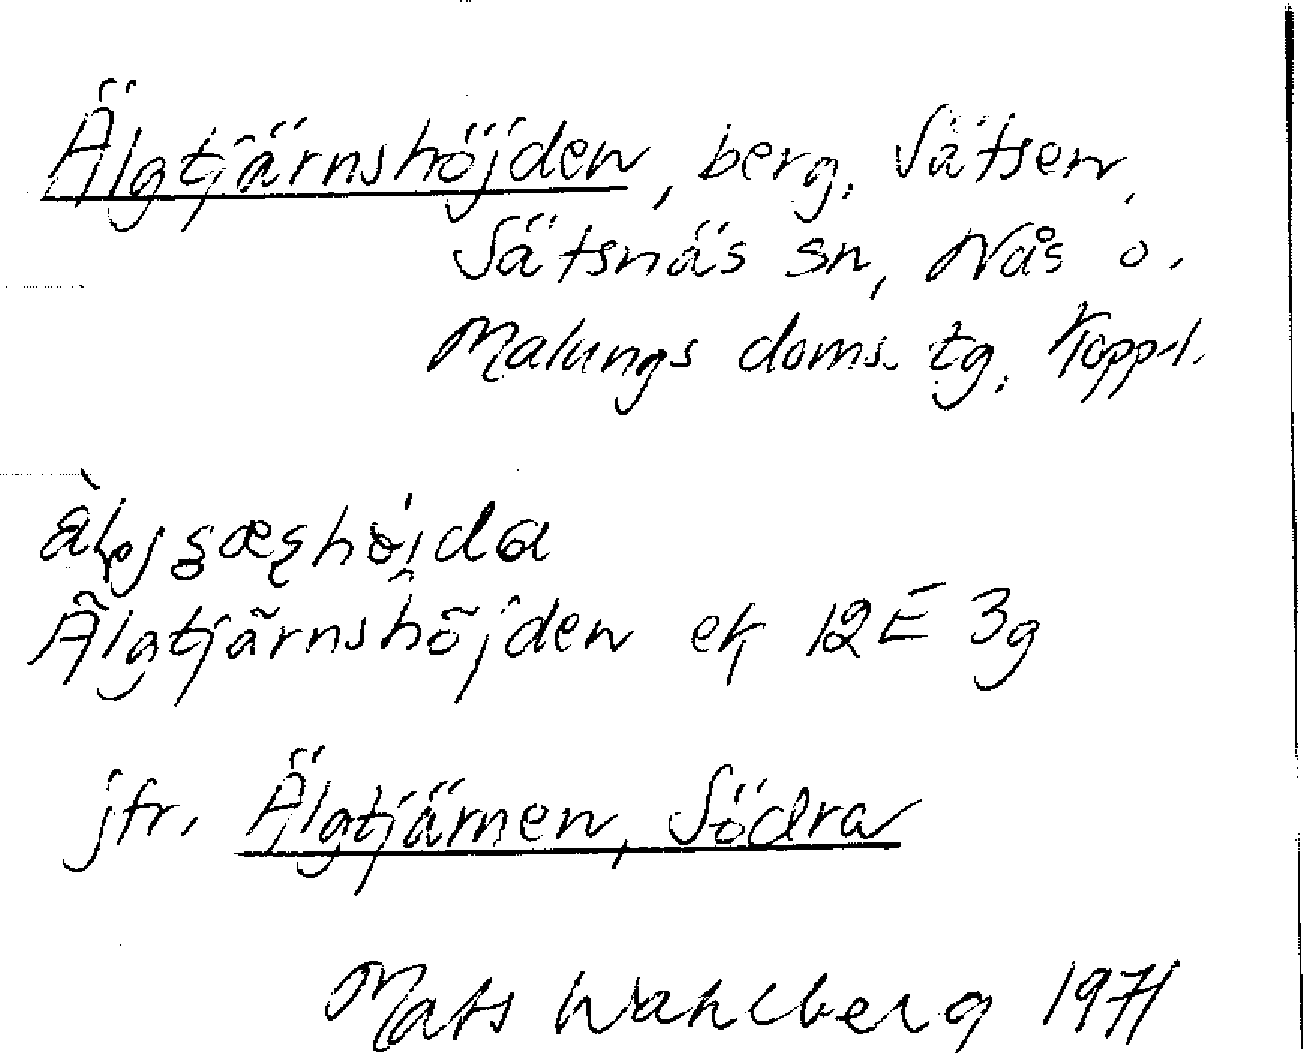 Älgtjärnshöjden, berg. Sätsen,
Sätsnäs sn, Nås o.
Malungs doms. tg. Kopp.l.
Älgtjärnshöjden ek 12E 3g
jfr. Älgtjärnen, Södra
Mats Wahlberg 1971